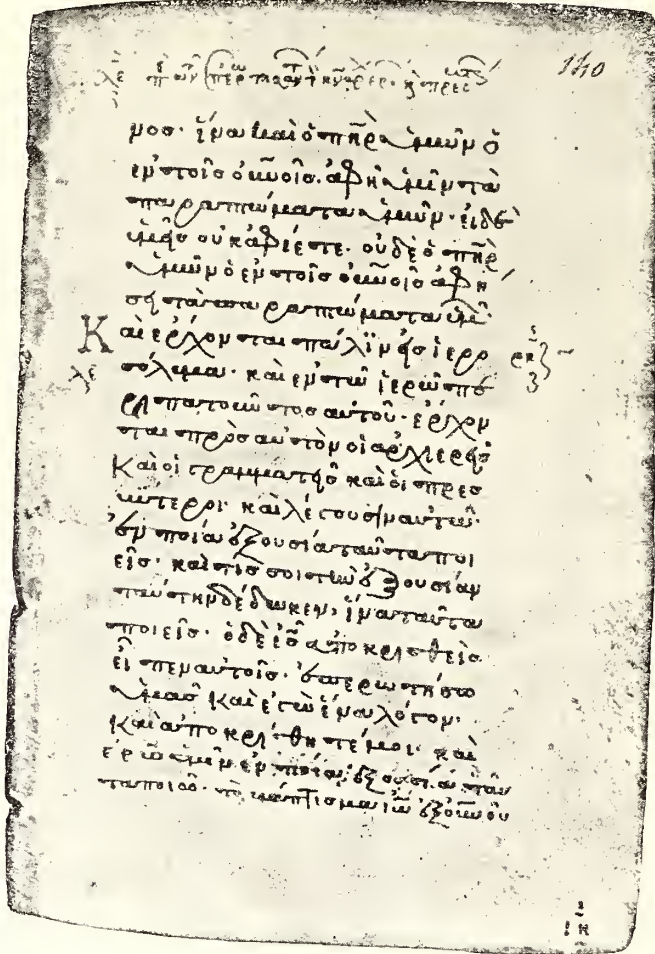 140
μοσ· ἵνα καὶ ὁ π̅η̅ρ̅ ὑμῶν ὁ
ἐν τοῖσ ο̅υ̅ν̅οῖσ. ἀφῆ ὑμῖν τὰ
παραπτώματα ὑμῶν· εἰ δὲ
ὑμεῖσ οὐκ ἀφίετε· οὐδὲ ὁ π̅η̅ρ̅
ὑμῶν ὁ ἐν τοῖσ ο̅υ̅ν̅οῖσ ἀφή
σει τὰ παραπτώματα ὑμῶν·
Καὶ ἔρχονται πάλιν εἰσ ἱερο
λε σόλυμα· καὶ ἐν τῶ ἱερῶ πε
ριπατοῦντοσ αὐτοῦ· ἔρχον
ται πρὸσ αὐτὸν οἱ ἀρχιερεῖσ
Καὶ οἱ γραμματεῖσ καὶ οἱ πρεσ
βύτεροι· καὶ λέγουσιν αὐτῶ·
ἐν ποία ἐξουσία ταῦτα ποι
εῖσ· καὶ τίσ σοι τὴν ἐξουσίαν
ταύτην δέδωκεν, ἵνα ταῦτα
ποιεῖσ· ὁ δὲ ι̅σ̅ ἀποκριθεὶσ
εἶπεν αὐτοῖσ· ἐπερωτήσω
ὑμᾶσ καὶ ἐγὼ ἕνα λόγον·
Καὶ ἀποκρίθητέ μοι· καὶ
ἐρῶ ὑμῖν ἐν ποία ἐξουσία ταῦ
τα ποιῶ· τὸ βάπτισμα ι̅ω̅ ἐξ ο̅υ̅ν̅οῦ